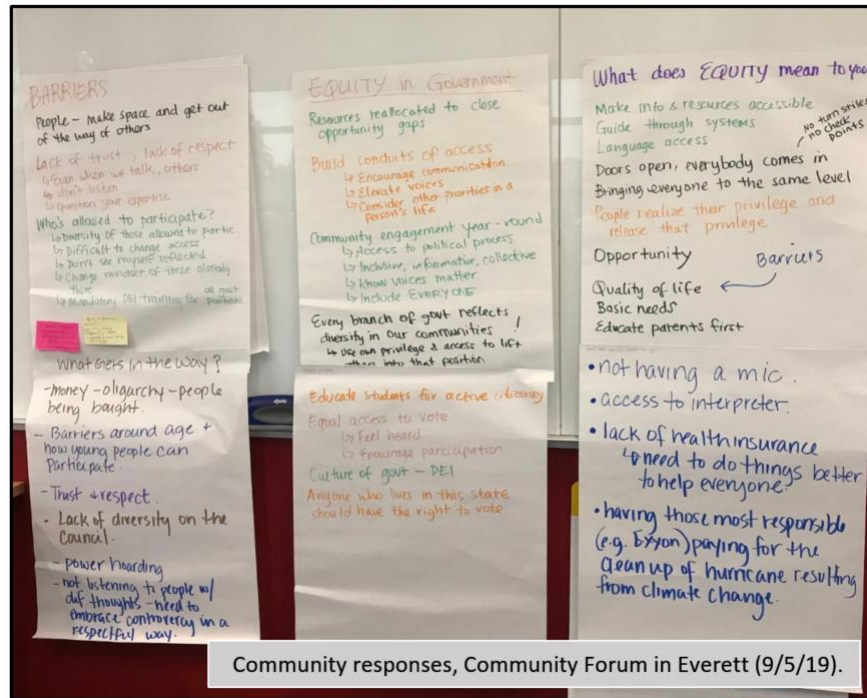 BARRIERS
People - make space and get out
of the way of others
Lack of trust, lack of respect
↳ Even when we talk, others
↳ don't listen
↳ Question your expertise
Who's allowed to participate?
↳ Diversity of those allowed to partic.
↳ Difficult to change access
↳ Don't see myself reflected
↳ Change mindset of those already
there
↳ Mandatory DEI training for all govt positions
What Gets in the way?
- money - oligarchy - people
being bought.
- Barriers around age +
how young people can
participate
- Trust + respect.
• Lack of diversity on the
Council.
- power hoarding
- not listening to people w/
dif thoughts - need to
embrace controvercy in a
respectful way.
EQUITY in Government
Resources reallocated to close
opportunity gaps
Build conduits of access
↳ Encourage communication
↳ Elevate voices
↳ Consider other priorities in a
person's life
Community engagement year-round
↳ Access to political process
↳ Inclusive, informative, collective
↳ Know voices matter
↳ Include EVERYONE
Every branch of govt reflects
diversity in our communities!
↳ use own privilege & access to lift
others into that position
Educate students for active citizenry
Equal access to vote
↳ Feel heard
↳ Encourage participation
Culture of govt - DEI
Anyone who lives in this state
should have the right to vote
What does EQUITY mean to you
Make info & resources accessible
Guide through systems
Language access
No turn stiles
no check
points
Doors open, everybody comes in
Bringing everyone to the same level
People realize their privilege and
release that privilege
Opportunity
Barriers
Quality of life
Basic needs
Educate parents first
• not having a mic.
• access to interpreter.
• lack of health insurance
↳ need to do things better
to help everyone.
• having those most responsible
(e.g. Exxon) paying for the
clean up of hurricane resulting
from climate change.
Community responses, Community Forum in Everett (9/5/19).